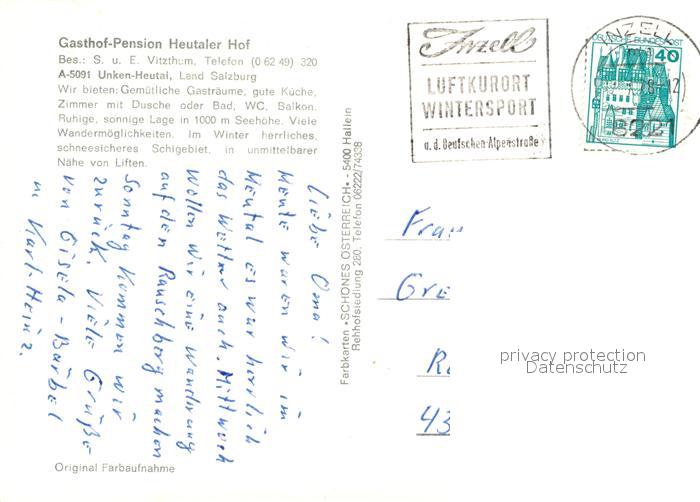 Gasthof-Pension Heutaler Hof
Bes.: S. u. E. Vitzthum, Telefon (0 62 49) 320
A-5091 Unken-Heutal, Land Salzburg
Wir bieten: Gemütliche Gasträume, gute Küche,
Zimmer mit Dusche oder Bad, WC, Balkon.
Ruhige, sonnige Lage in 1000 m Seehöhe. Viele
Wandermöglichkeiten. Im Winter herrliches,
schneesicheres Schigebiet, in unmittelbarer
Nähe von Liften.
Liebe Oma!
Heute waren wir im
Heutal es war herrlich
das Wetter auch. Mittwoch
wollen wir eine Wanderung
auf den Rauschberg machen
Sonntag kommen wir
zurück. Viele Grüße
von Gisela - Bärbel
u. Karl-Heinz.
Original Farbaufnahme
Farbkarten »SCHÖNES ÖSTERREICH« - 5400 Hallein
Rehhofsiedlung 280, Telefon 06222/74338
Inzell
LUFTKURORT
WINTERSPORT
a. d. Deutschen Alpenstraße
INZELL
DEUTSCHE BUNDESPOST
40
8221
Frau
Gre
R
43
privacy protection
Datenschutz